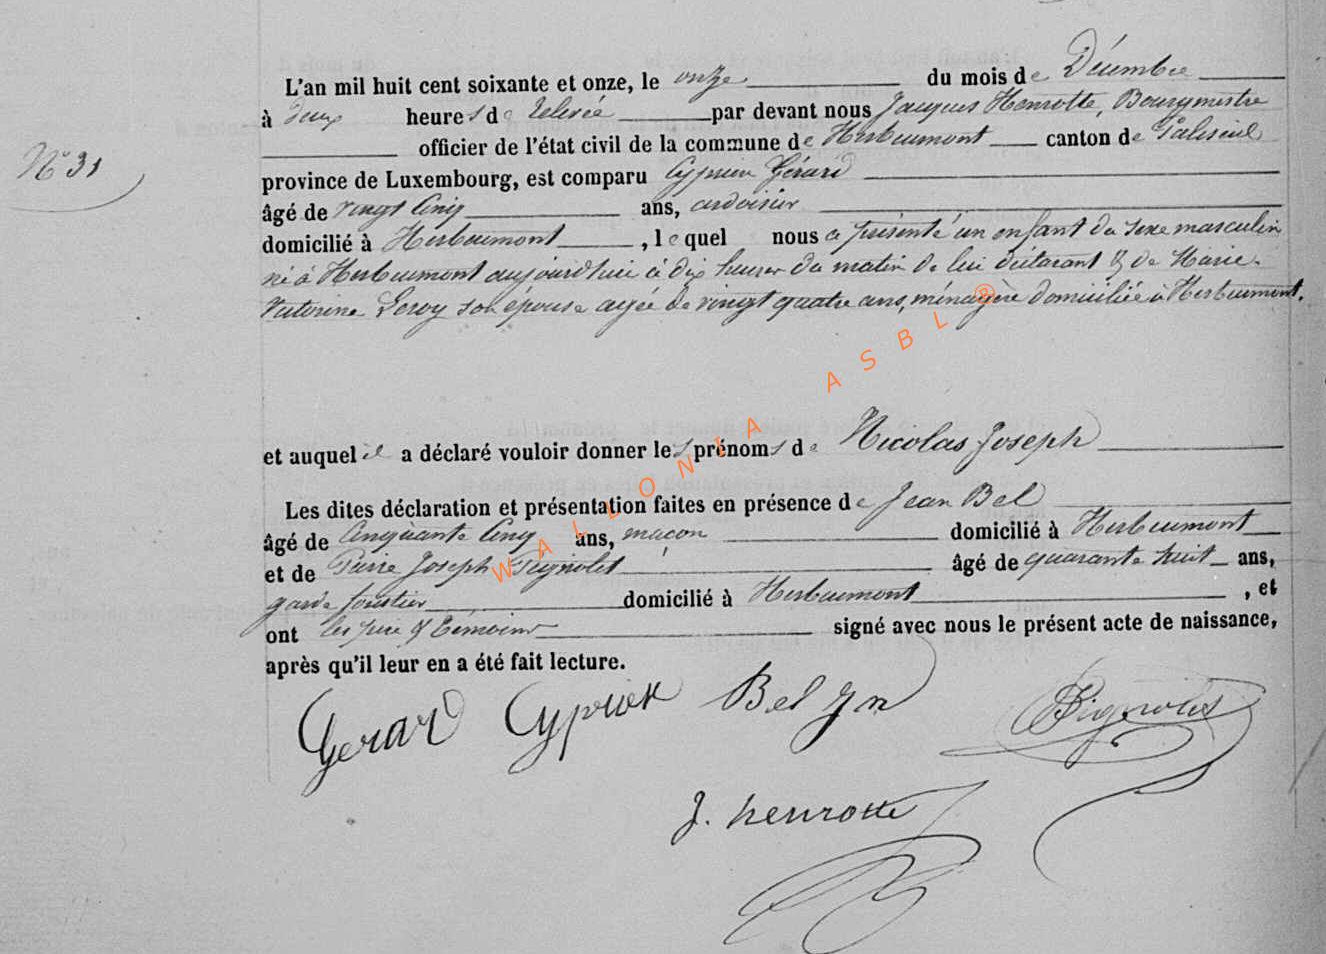 L'an mil huit cent soixante et onze, le onze du mois de Décembre
à deux heures de relevée par devant nous Jacques Henrotte, Bourgmestre
officier de l'état civil de la commune de Herbeumont canton de Paliseul
province de Luxembourg, est comparu Cyprien Gérard
N° 31
âgé de vingt Cinq ans, ardoisier
domicilié à Herbeumont, lequel nous a présenté un enfant du sexe masculin
né à Herbeumont aujourd'hui à dix heures du matin de lui déclarant & de Marie
Victorine Leroy son épouse agée de vingt quatre ans, ménagère domiciliée à Herbeumont.
et auquel il a déclaré vouloir donner les prénoms de Nicolas Joseph
Les dites déclaration et présentation faites en présence de Jean Bel
âgé de Cinquante Cinq ans, maçon domicilié à Herbeumont
et de Pierre Joseph Pignolet âgé de quarante huit ans,
garde forestier domicilié à Herbeumont, et
ont les père & témoins signé avec nous le présent acte de naissance,
après qu'il leur en a été fait lecture.
Gérard Cyprien Bel Jn Pignolet
J. henrotte
WALLONIA ASBL ®